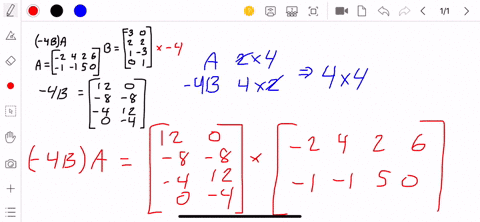 1/1
(-4B)A
A = [-2 4 2 6
-1 -1 5 0]
B = [-3 0
2 2
1 -3
0 1] × -4
-4B = [12 0
-8 -8
-4 12
0 -4]
A 2×4
-4B 4×2 ⇒ 4×4
(-4B) A = [12 0
-8 -8
-4 12
0 -4] × [-2 4 2 6
-1 -1 5 0]